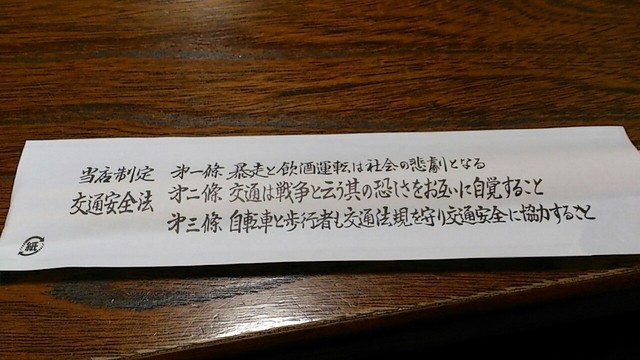 当店制定
交通安全法
㐧一條 暴走と飲酒運転は社会の悲劇となる
㐧二條 交通は戦争と云う其の恐しさをお互いに自覚すること
㐧三條 自転車と歩行者も交通法規を守り交通安全に協力すること
紙